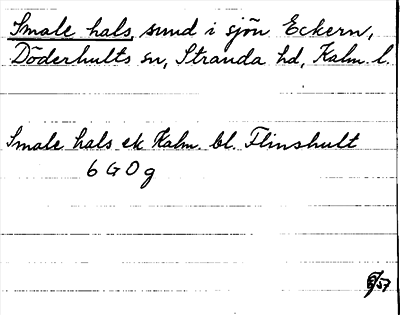 Smale hals, sund i sjön Eckern,
Döderhults sn, Stranda hd, Kalm. l.
Smale hals ek Kalm. bl. Flinshult
6 G O g